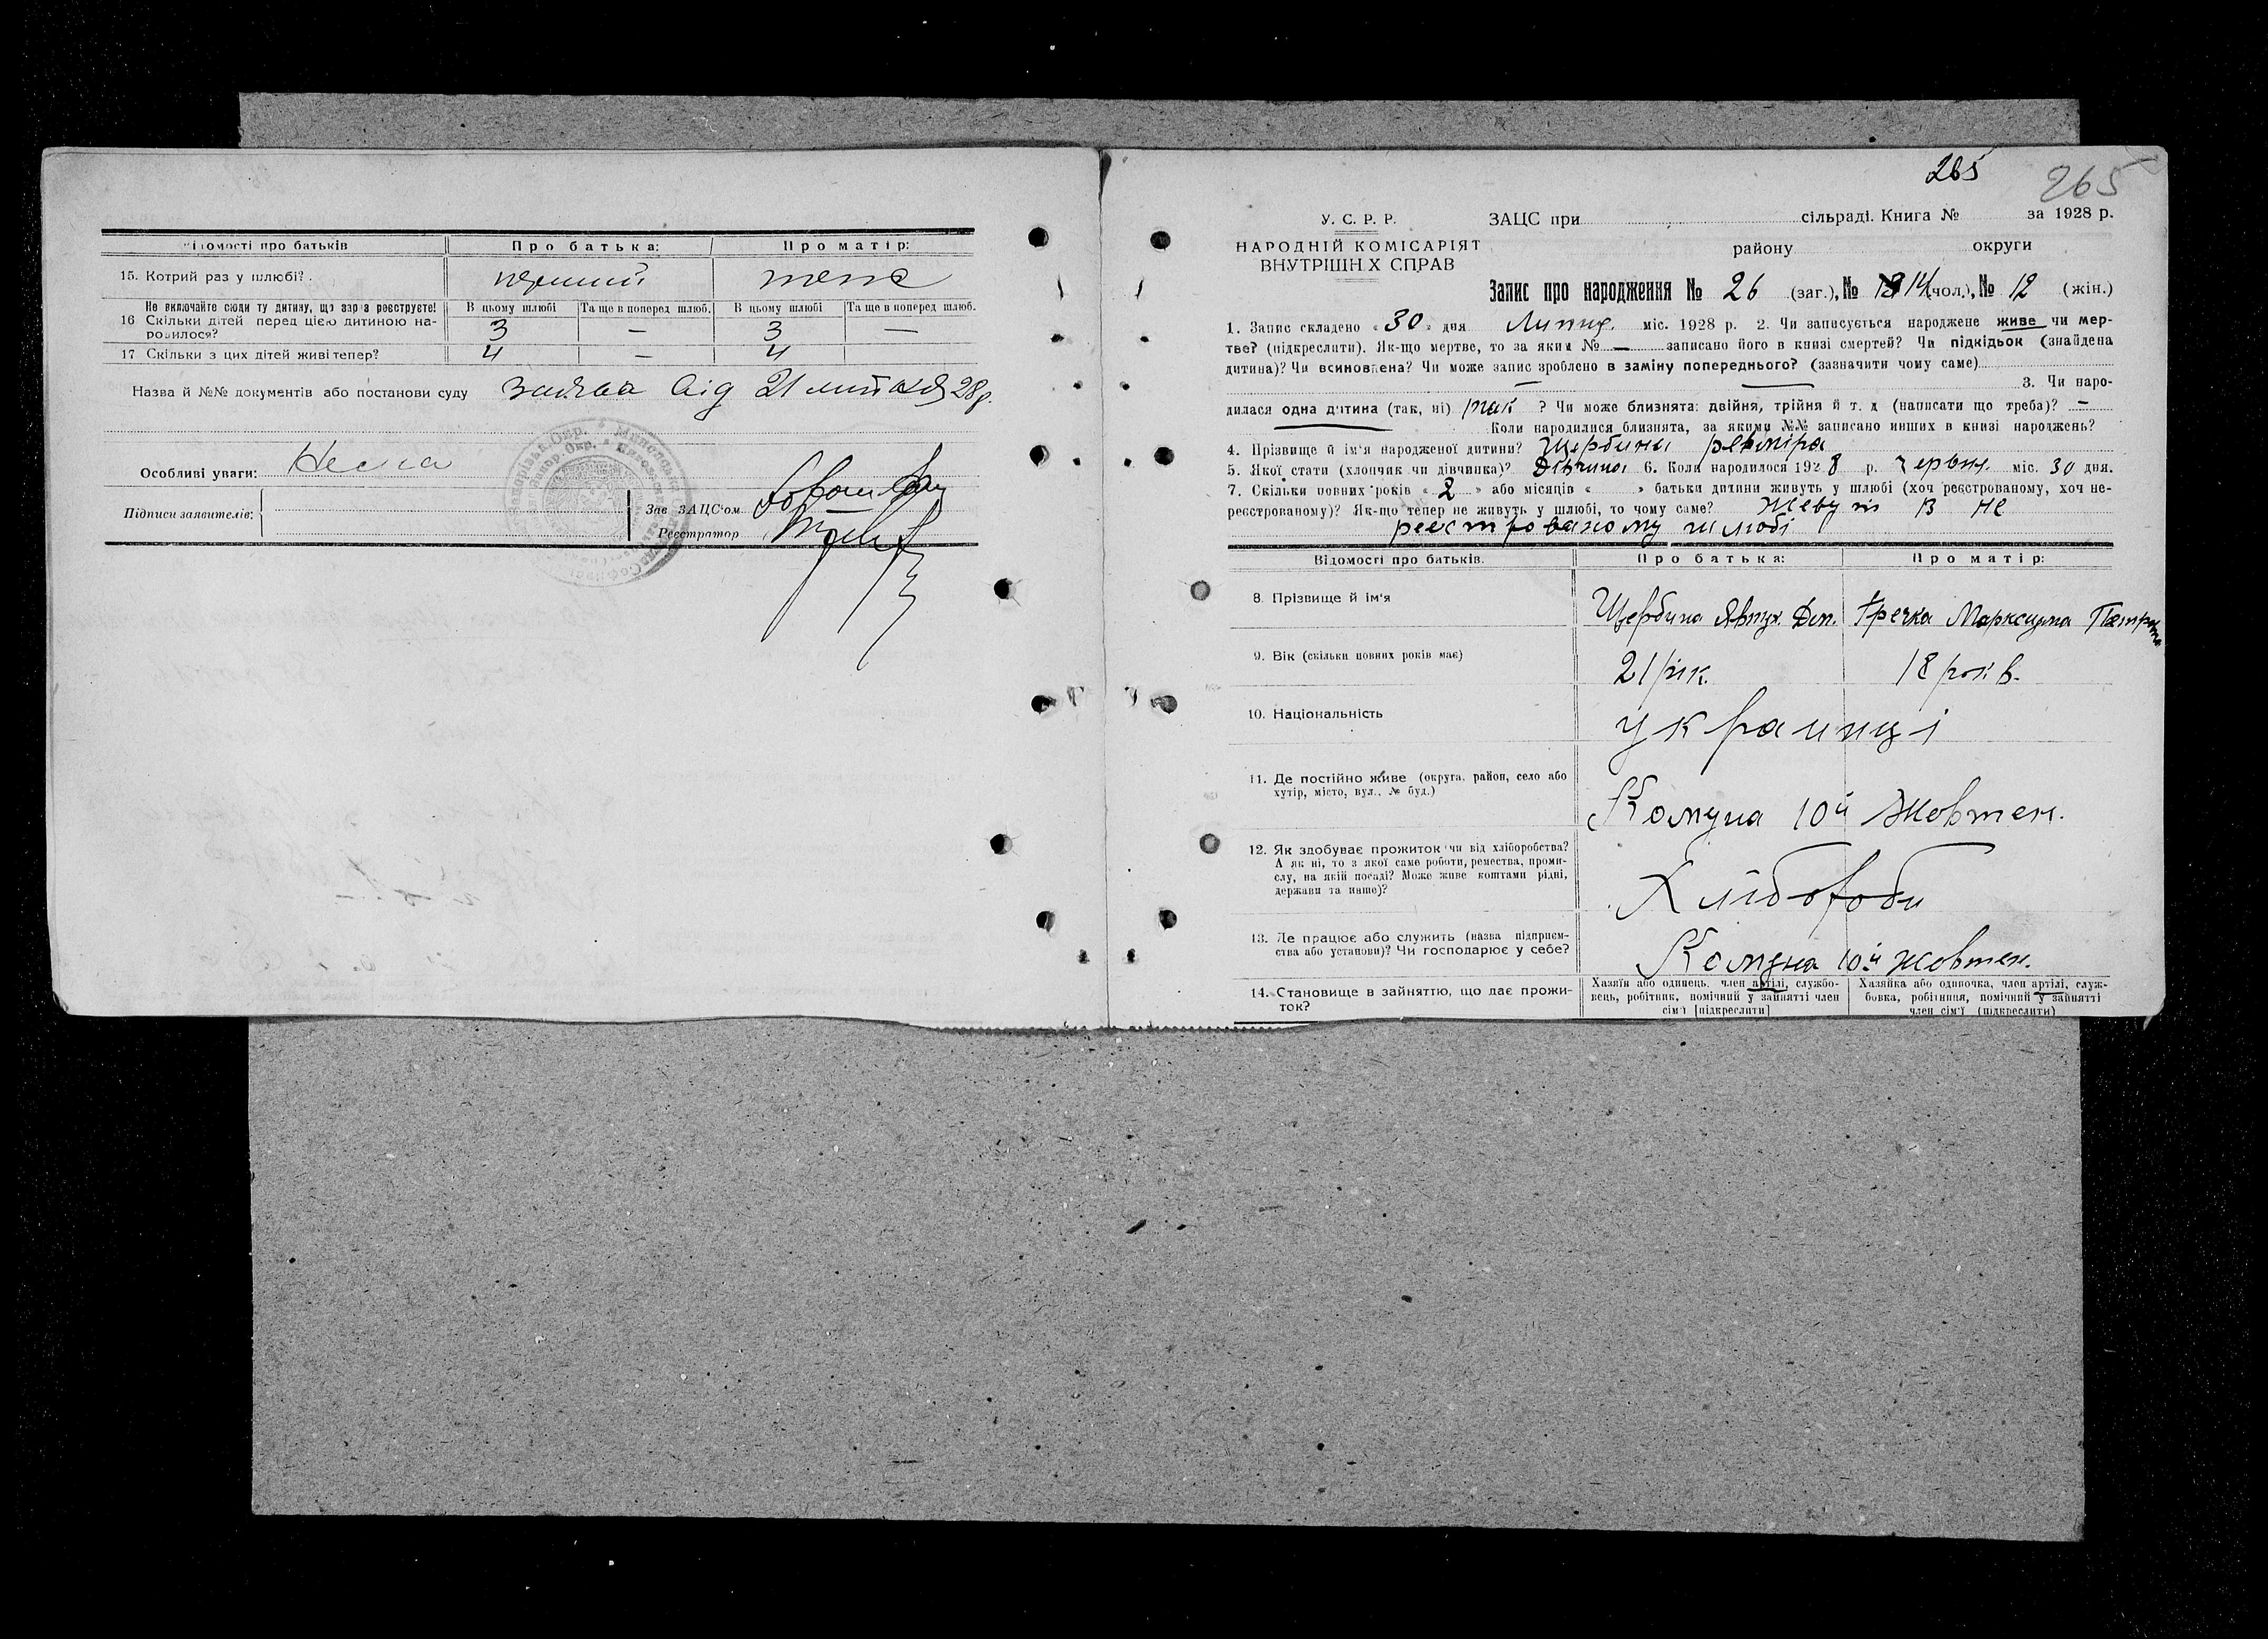 Відомості про батьків Про батька: Про матір:
15. Котрий раз у шлюбі? перший теж
Не включайте сюди ту дитину, що зараз реєструєте! В цьому шлюбі Та ще в поперед шлюб. В цьому шлюбі Та ще в поперед шлюб.
16 Скільки дітей перед цією дитиною на-
родилося? 3 — 3 —
17 Скільки з цих дітей живі тепер? 4 — 4
Назва й №№ документів або постанови суду заява від 21 28 р.
Особливі уваги: Нема
Підписи заявителів:
Зав ЗАЦС'ом
Реєстратор
265 265
У. С. Р. Р. ЗАЦС при сільраді. Книга № за 1928 р.
НАРОДНІЙ КОМІСАРІЯТ району округи
ВНУТРІШНІХ СПРАВ
Запис про народження № 26 (заг.), № 14 (чол.), № 12 (жін.)
1. Запис складено «30» дня Липня міс. 1928 р. 2. Чи записується народжене живе чи мер-
тве? (підкреслити). Як-що мертве, то за яким № — записано його в книзі смертей? Чи підкідьок (знайдена
дитина)? Чи всиновлена? Чи може запис зроблено в заміну попереднього? (зазначити чому саме)
3. Чи наро-
дилася одна дитина (так, ні) так ? Чи може близнята: двійня, трійня й т. д (написати що треба)? —
Коли народилися близнята, за якими №№ записано инших в книзі народжень?
4. Прізвище й ім'я народженої дитини? Щербина
5. Якої стати (хлопчик чи дівчинка)? Дівчина 6. Коли народилося 1928 р. Червня міс. 30 дня.
7. Скільки повних років «2» або місяців « » батьки дитини живуть у шлюбі (хоч реєстрованому, хоч не-
реєстрованому)? Як-що тепер не живуть у шлюбі, то чому саме? Живут в не
реєстрованому шлюбі
Відомості про батьків. Про батька: Про матір:
8. Прізвище й ім'я Щербина Явтух Дем. Гречка Марксима
9. Вік (скільки повних років має) 21 рік. 18 років.
10. Національність украинці
11. Де постійно живе (округа, район, село або
хутір, місто, вул., № буд.) Комуна 10й Жовтен.
12. Як здобуває прожиток чи від хліборобства?
А як ні, то з якої саме роботи, ремества, проми-
слу, на якій посаді? Може живе коштами рідні,
держави та инше)? Хлібороби
13. Де працює або служить (назва підприєм-
ства або установи)? Чи господарює у себе? Комуна 10й жовтен.
14. Становище в зайняттю, що дає прожи-
ток?
Хазяїн або одинець, член артілі, службо-
вець, робітник, помічний у зайнятті член
сім'ї [підкреслити]
Хазяйка або одиночка, член артілі, служ-
бовка, робітниця, помічний у зайнятті
член сім'ї (підкреслити)